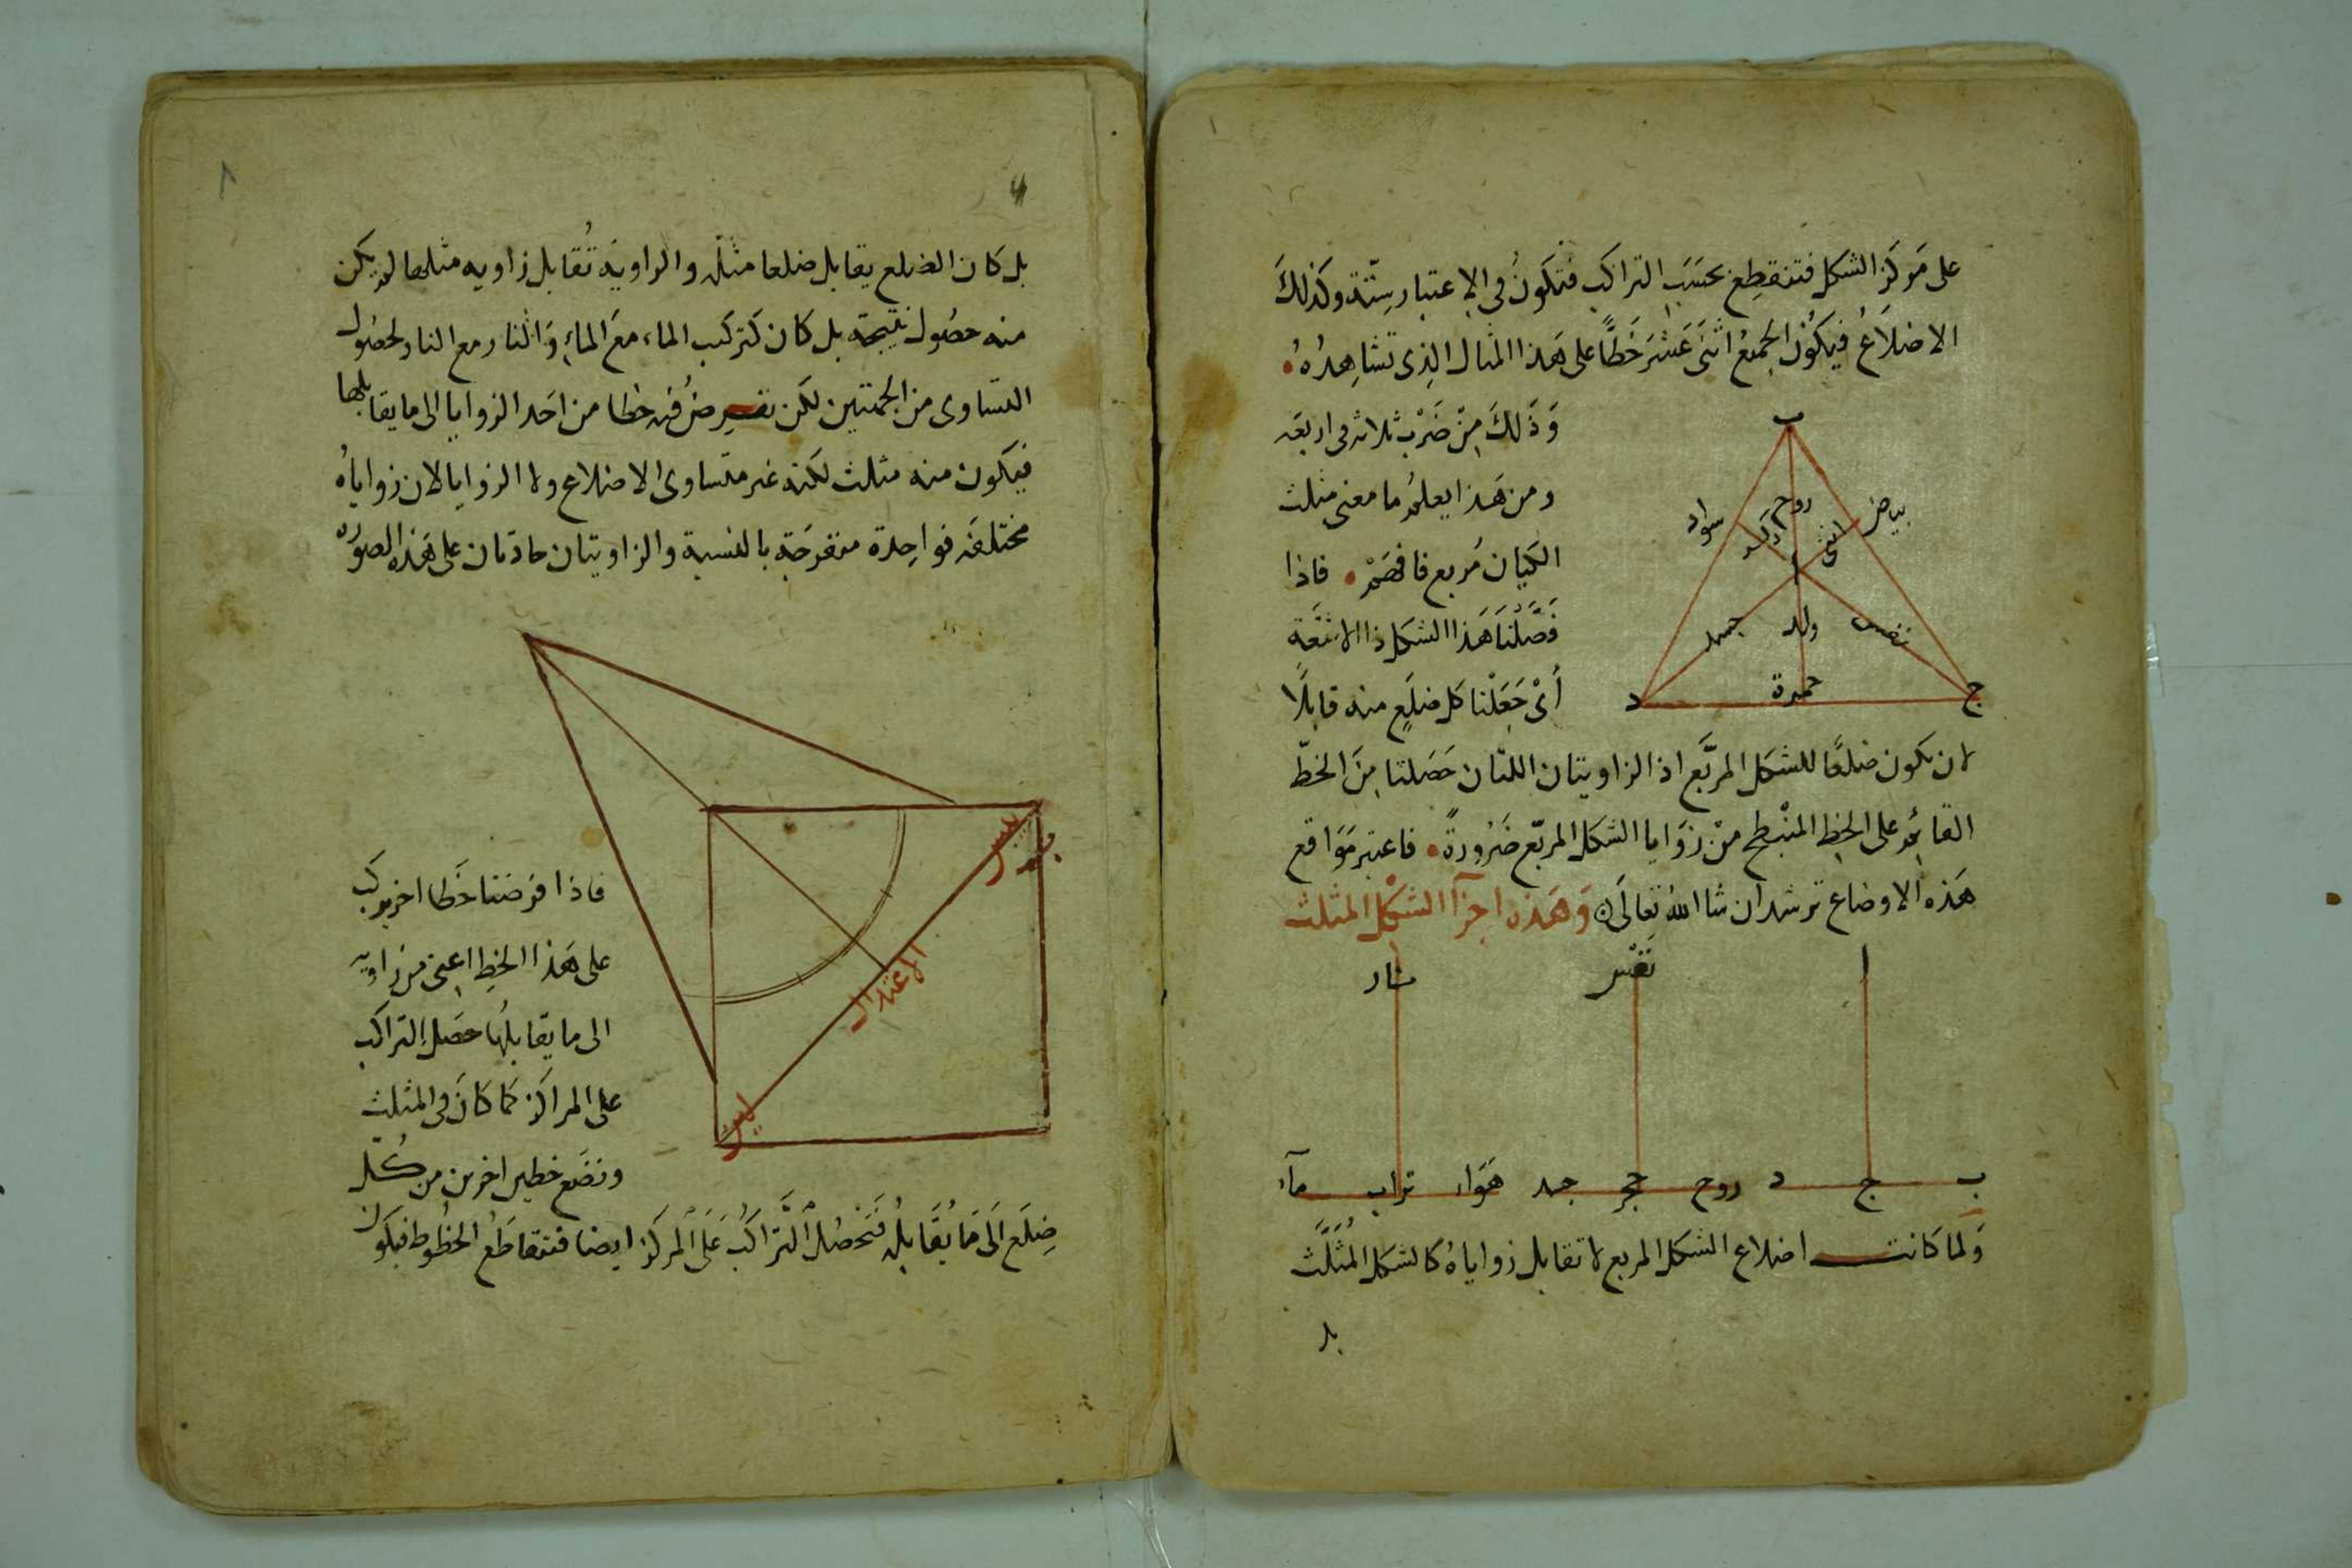 على مَركَز الشكل فتنقطِع بحسَب التراكب فتكونُ فى الاعتبار ستّة وكذلكَ
الاضلاعُ فيكون الجميعُ اثنىَ عَشرَ خَطًّا على هَذا المثال الذى تشاهِدُهُ
وَذَلكَ مِنْ ضَرْب ثلاثه فى اربعَه
ومن هَذا يعلمُ ما معنى مثلث
الكيان مُربع فافهَمْ فاذا
فَصَّلنَا هَذا الشكل ذا الاشعَّة
أىْ جَعَلْنا كل ضلَعٍ منه قابلًا
لان يكون ضلعًا للشكل المربَّع اذ الزاويتان اللتان حَصَلتا مِنَ الخطّ
القائِم على الخط المنْبطح مِنْ زوَايا الشكل المربّع ضَرُورةً فاعتبر مَوَاقع
هَذه الاوضاع ترشد ان شا الله تعالَى وَهَذه اجزآ الشكل المثلث
ب
سواد
روح
بياض
ذكر
انثى
ا
جسد
ولد
نفس
د
حمرة
ج
ا
نفس
نار
ب ج د روح حجر جسد هَوَاء تراب مآء
وَلما كانت اضلاع الشكل المربع لا تقابل زواياهُ كالشكل المُثَلَّث
بل
٨
بل كان الضلع يقابل ضلعا مثله والزاوية تُقابل زاويه مثلها لم يكن
منه حصُول نتيجة بل كان كتركب الماء معَ الماءِ وَالنار مع النار لحصُول
التساوى من الجهتين لكن نفرض فيه خطا من احَد الزوايا الى ما يقابلها
فيكون منه مثلث لكنه غير متساوى الاضلاع ولا الزوايا لان زواياهُ
مختلفَه فواحِدة منفرجَة بالنسبة والزاويتان حادتان على هَذه الصورُه
يبس
الاعتدال
يبس
فاذا فرضنا خَطا اخر يركب
على هَذا الخط اعنى من زاويه
الى ما يقابلُها حصَل التراكب
على المراكز كما كانَ فى المثلث
ونضَع خطين اخرين من كُل
ضِلَع الَى مَا يُقَابلُه فتَحْصُل التَّراكُبُ عَلَى المركز ايضا فتتقاطَعُ الخُطُوط فيكون